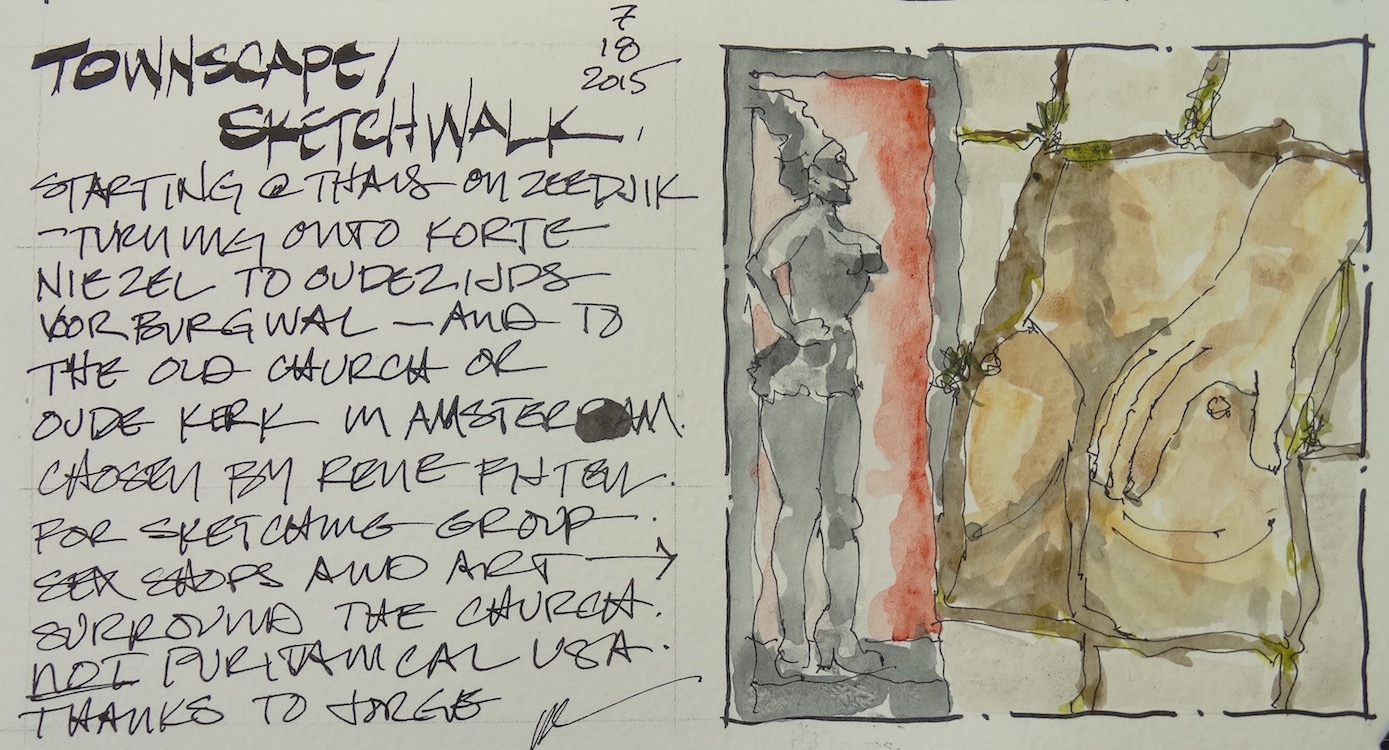 TOWNSCAPE/
SKETCHWALK,
7
18
2015
STARTING @ THAIS ON ZEEDIJK
-TURNING ONTO KORTE
NIEZEL TO OUDEZIJDS
VOORBURGWAL — AND TO
THE OLD CHURCH OR
OUDE KERK IN AMSTERDAM.
CHOSEN BY RENE FIJTEN.
FOR SKETCHING GROUP.
SEX SHOPS AND ART →
SURROUND THE CHURCH.
NOT PURITANICAL USA.
THANKS TO JORGE